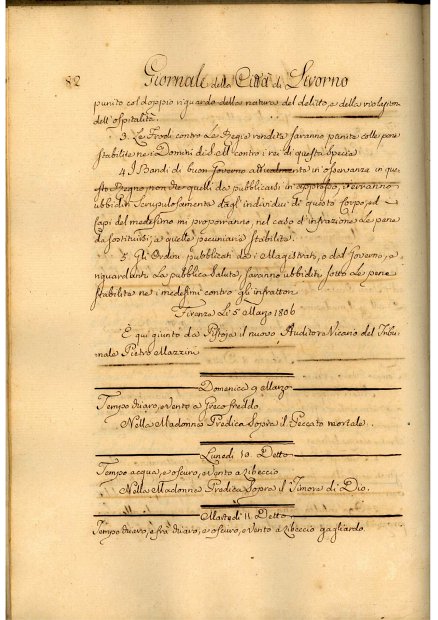 82
Giornale della Città di Livorno
punito col doppio riguardo della natura del delitto, e della violazion
dell'ospitalità.
3. Le Frodi contro le Regie vendite saranno punite colle pene
stabilite nei Domini di S. M. contro i rei di questa specie
4. I Bandi di buon Governo attualmente in osservanza in que-
sto Regno, non che quelli da pubblicarsi in appresso, verranno
ubbiditi scrupulosamente dagl'individui di questo Corpo, ed
Capi del medesimo mi proporranno, nel caso d'infrazione le pene
da sostituirsi, a quelle pecuniarie stabilite.
5. Gli Ordini pubblicati da i Magistrati, o dal Governo, e
riguardanti la pubblica salute, saranno ubbiditi sotto le pene
stabilite nei medesimi contro gli infrattori.
Firenze Li 5 Marzo 1806
È qui giunto da Pistoja il nuovo Auditore Vicario del Tribu-
nale Pietro Mazzini
Domenica 9 Marzo
Tempo chiaro, e vento a Greco freddo
Nella Madonna Predica sopra il Peccato mortale.
Lunedì 10. Detto
Tempo acqua, e oscuro, e vento a Libeccio
Nella Madonna Predica sopra il Timore di Dio.
Martedì 11 Detto
Tempo chiaro, e fra chiaro, e oscuro, e vento a Libeccio gagliardo